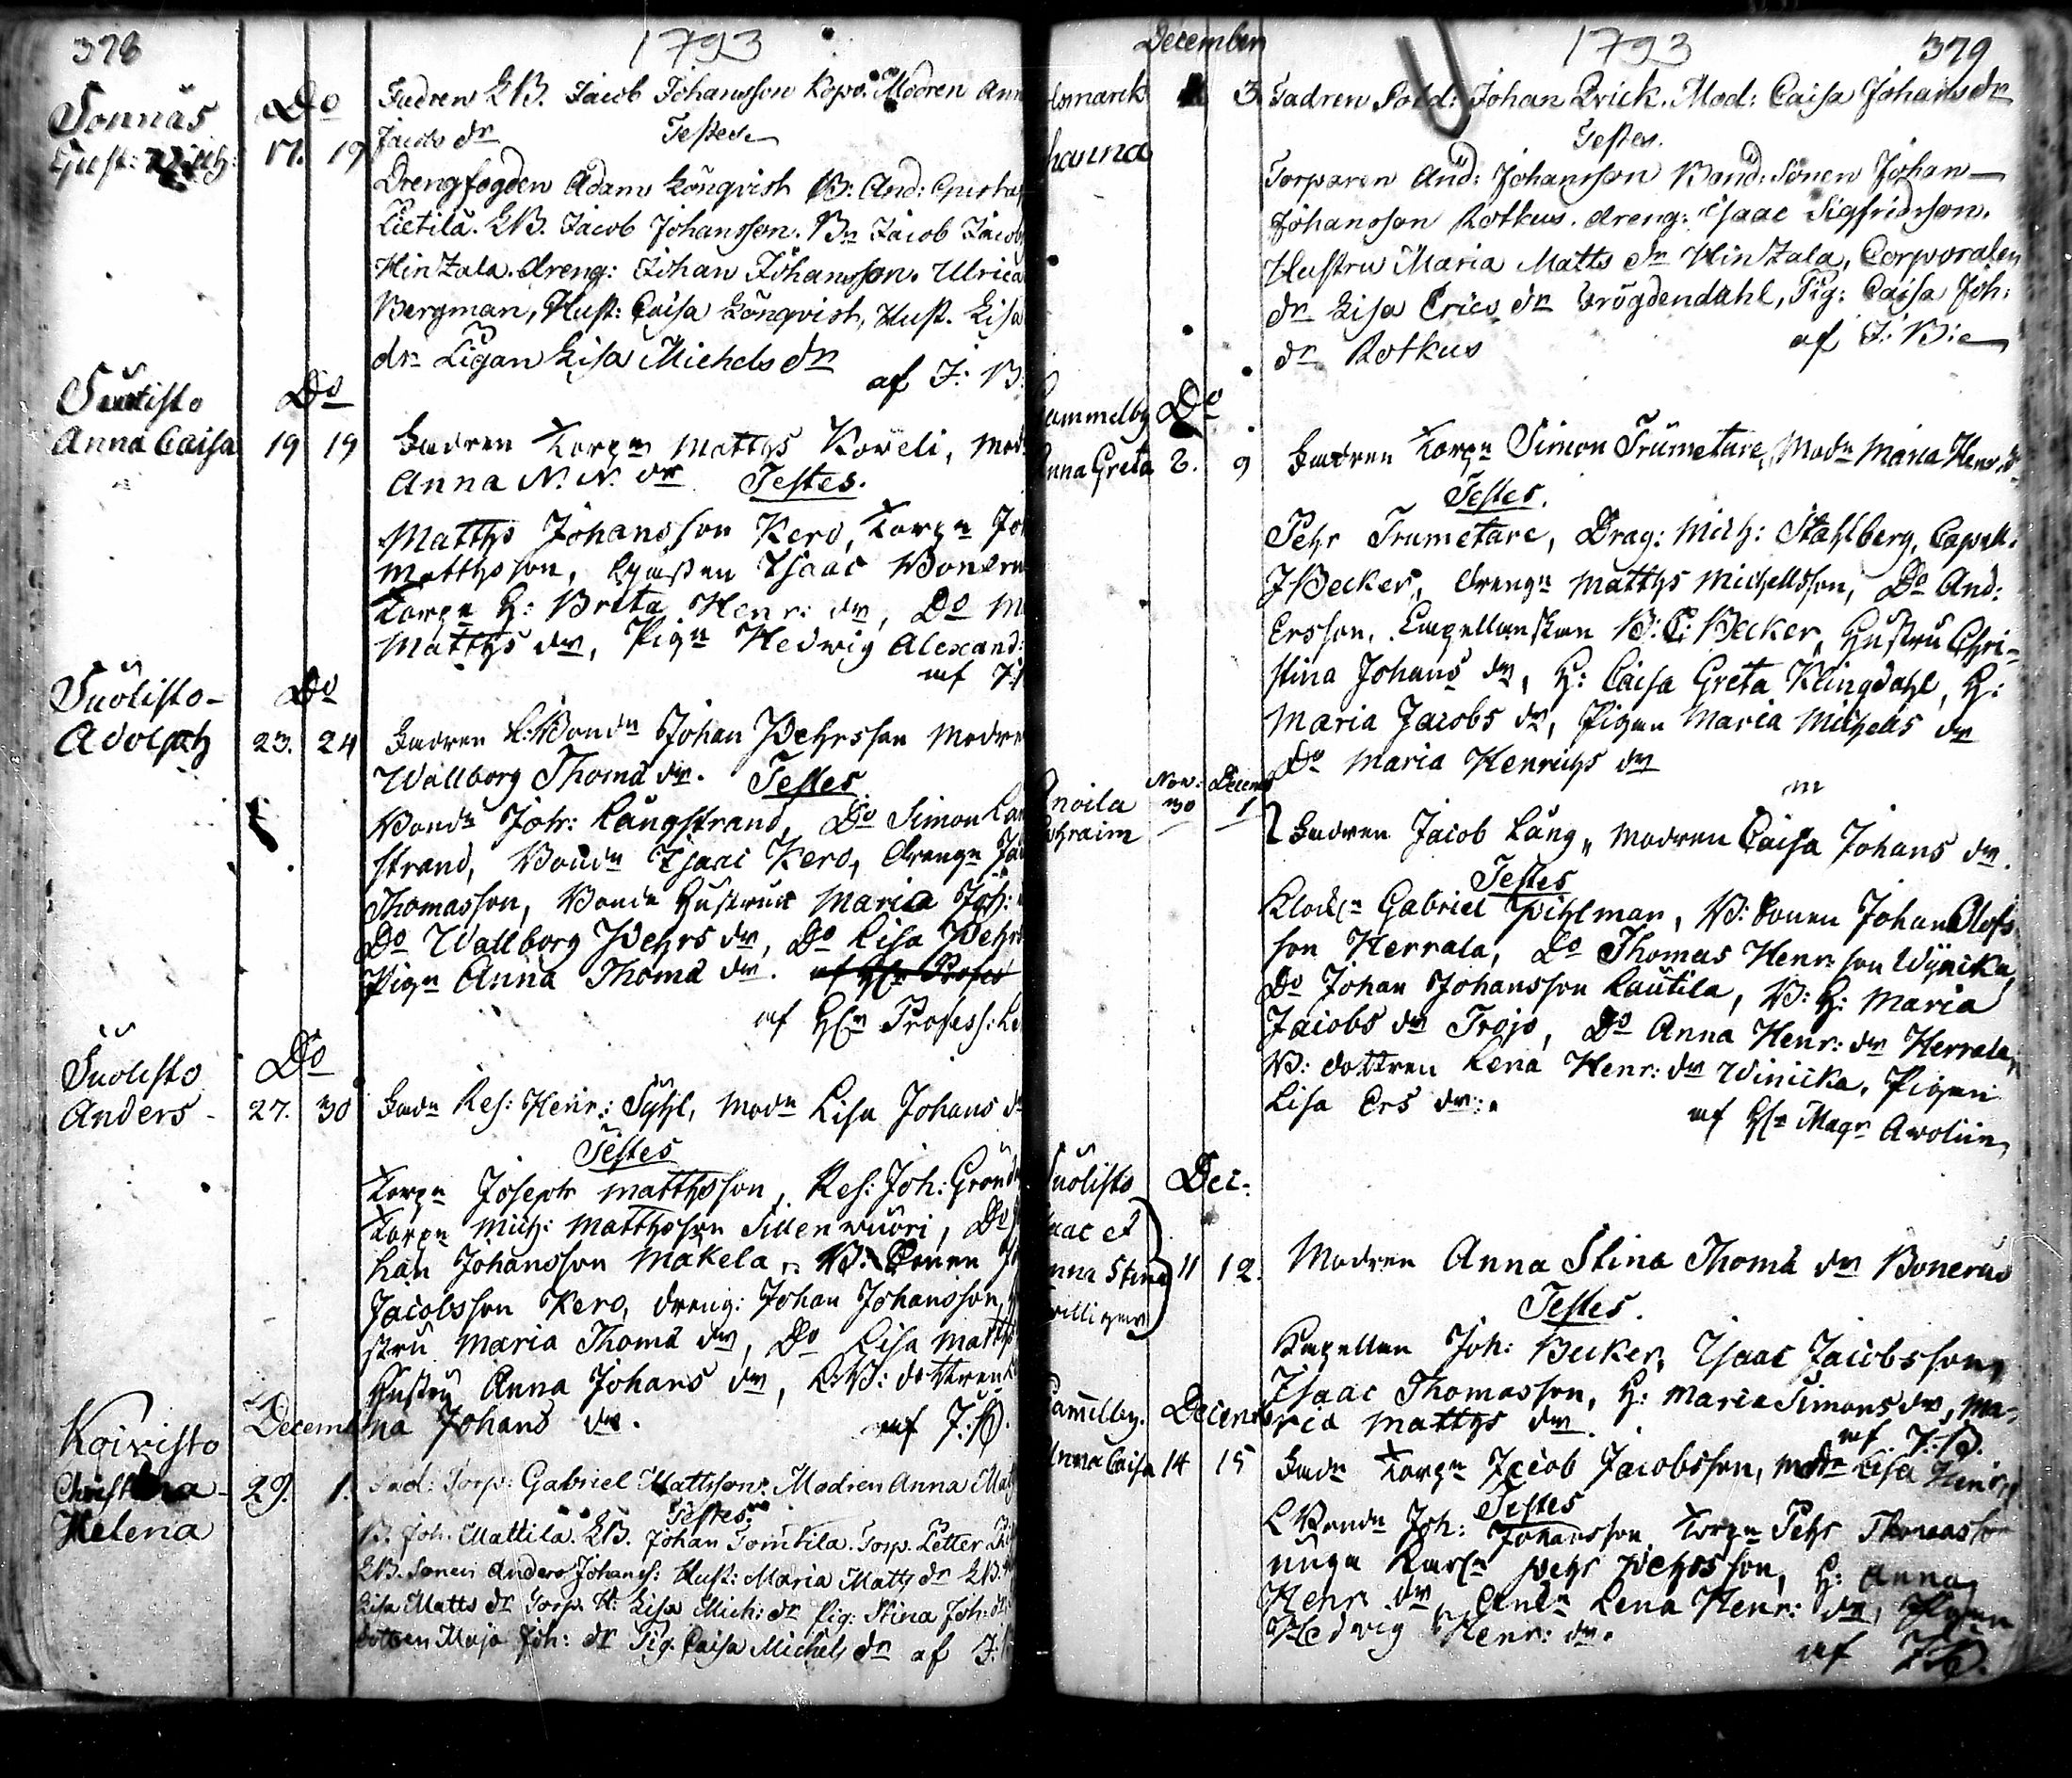 378
1793
Sonnäs Do Fadren LB. Jacob Johansson Kopo. Modren Ann
Jacobs dr Testes
Gust: 17. 19
Drengfogden Adam Lönqvist B: And: Gustaf
Lietilä. LB. Jacob Johansson. Bn Jacob Jacobs
Hintzala. dreng: Johan Johansson. Ulrica
Bergman, Hust: Caisa Lönqvist, Hust. Lisa
dr Pigan Lisa Michels dr
af J: B:
Suolisto Do
Anna Caisa 19 19 Fadren Torpn Matths Koveli, Mod:
Anna N. N. dr Testes.
Matths Johansson Kero, Torpn Joh
Matthsson, Gjästen Isaac Boneru
Torpn H: Brita Henr: dr, Do M
Matths dr, Pign Hedwig Alexand:
af J:
Suolisto Do
Adolph 23. 24 Fadren L:Bondn Johan Pehrsson Modre
Wallborg Thomä dr. Testes
Bondn Joh: Långstrand, Do Simon Lån
strand, Bondn Isaac Kero, drengn Jac
Thomasson, Bonde Hustrun Maria Joh:
Do Wallborg Pehrs dr, Do Lisa Pehrs
Pign Anna Thomä dr. af Hr Profes
af Hr Profess: Le
Suolisto Do
Anders 27. 30 Fadn Res: Henr: Sjöhl, Modn Lisa Johans d
Testes
Torpn Joseph Matthsson, Res: Joh: Grönd
Torpn Mich: Matthsson Sillenwuori, Do J
han Johansson Mäkelä, B: Sonen J
Jacobsson Kero, dreng: Johan Johansson, H
stru Maria Thomä dr, Do Lisa Matths
Hustru Anna Johans dr, L.B: dottren
na Johans dr. af J: B.
Koivisto Decemb
Christina 29. 1. Fad: Torp: Gabriel Mattsson. Modren Anna Mat
Helena Testes
B. Joh. Mattila. LB. Johan Tomtila. Torp. Petter
LB. Sonen Anders Johans: Hust: Maria Matts dr LB.
Lisa Matts dr Torp. H: Lisa Mich: dr Pig: Stina Joh: dr
dottren Maja Joh: dr Pig. Caisa Michels dr af J:
December 1793 379
lsmarck 3 Fadren Sold: Johan Brick. Mod: Caisa Johans dr
hanna Testes.
Torparen And: Johansson Bond: Sonen Johan
Johansson Rotkus. dreng: Isaac Sigfridsson.
Hustru Maria Matts dr Hintzala, Corporalen
dr Lisa Erics dr Frögdendahl, Pig: Caisa Joh:
dr Rotkus af J: B:
ammelby Do
nna Greta 2. 9 Fadren Torpn Simon Trumetare, Modn Maria Henr. dr
Testes.
Pehr Trumetare, Drag: Mich: Stahlberg, Capell:
J Becker, drengn Matths Michellsson, Do And:
Ersson, Capellanskan B: C: Becker, Hustru Chri-
stina Johans dr, H: Caisa Greta Klingdahl, H:
Maria Jacobs dr, Pigan Maria Michels dr
Do Maria Henrichs dr
Nov: Decemb
noila 30 1
phraim Fadren Jacob Lång, Modren Caisa Johans dr.
Testes
Klockn Gabriel Pihlman, B: Sonen Johan Olofs
son Herrala, Do Thomas Henr: son Wijnika,
Do Johan Johansson Rautila, B: H: Maria
Jacobs dr Trojo, Do Anna Henr: dr Herrala,
B: dottren Lena Henr: dr Winicka, Pigan
Lisa Ers dr:
af Hr Magr Avolin
uolisto Dec:
saac et
nna Stina 11 12. Modren Anna Stina Thomä dr Bonerus
villingar Testes.
Capellan Joh: Becker, Isaac Jacobsson,
Isaac Thomasson, H: Maria Simons dr, Ma-
ria Matths dr. af J: B.
amelby. Decemb
Anna Caisa 14 15 Fadn Torpn Jacob Jacobsson, Modn Lisa Henr
Testes
LBondn Joh: Johansson Torpn Pehr Thomasson
unga Karln Pehr Pehrsson, H: Anna
Henr dr, Enkn Lena Henr: dr, Pigan
Hedvig Henr: dr.
af J: B.